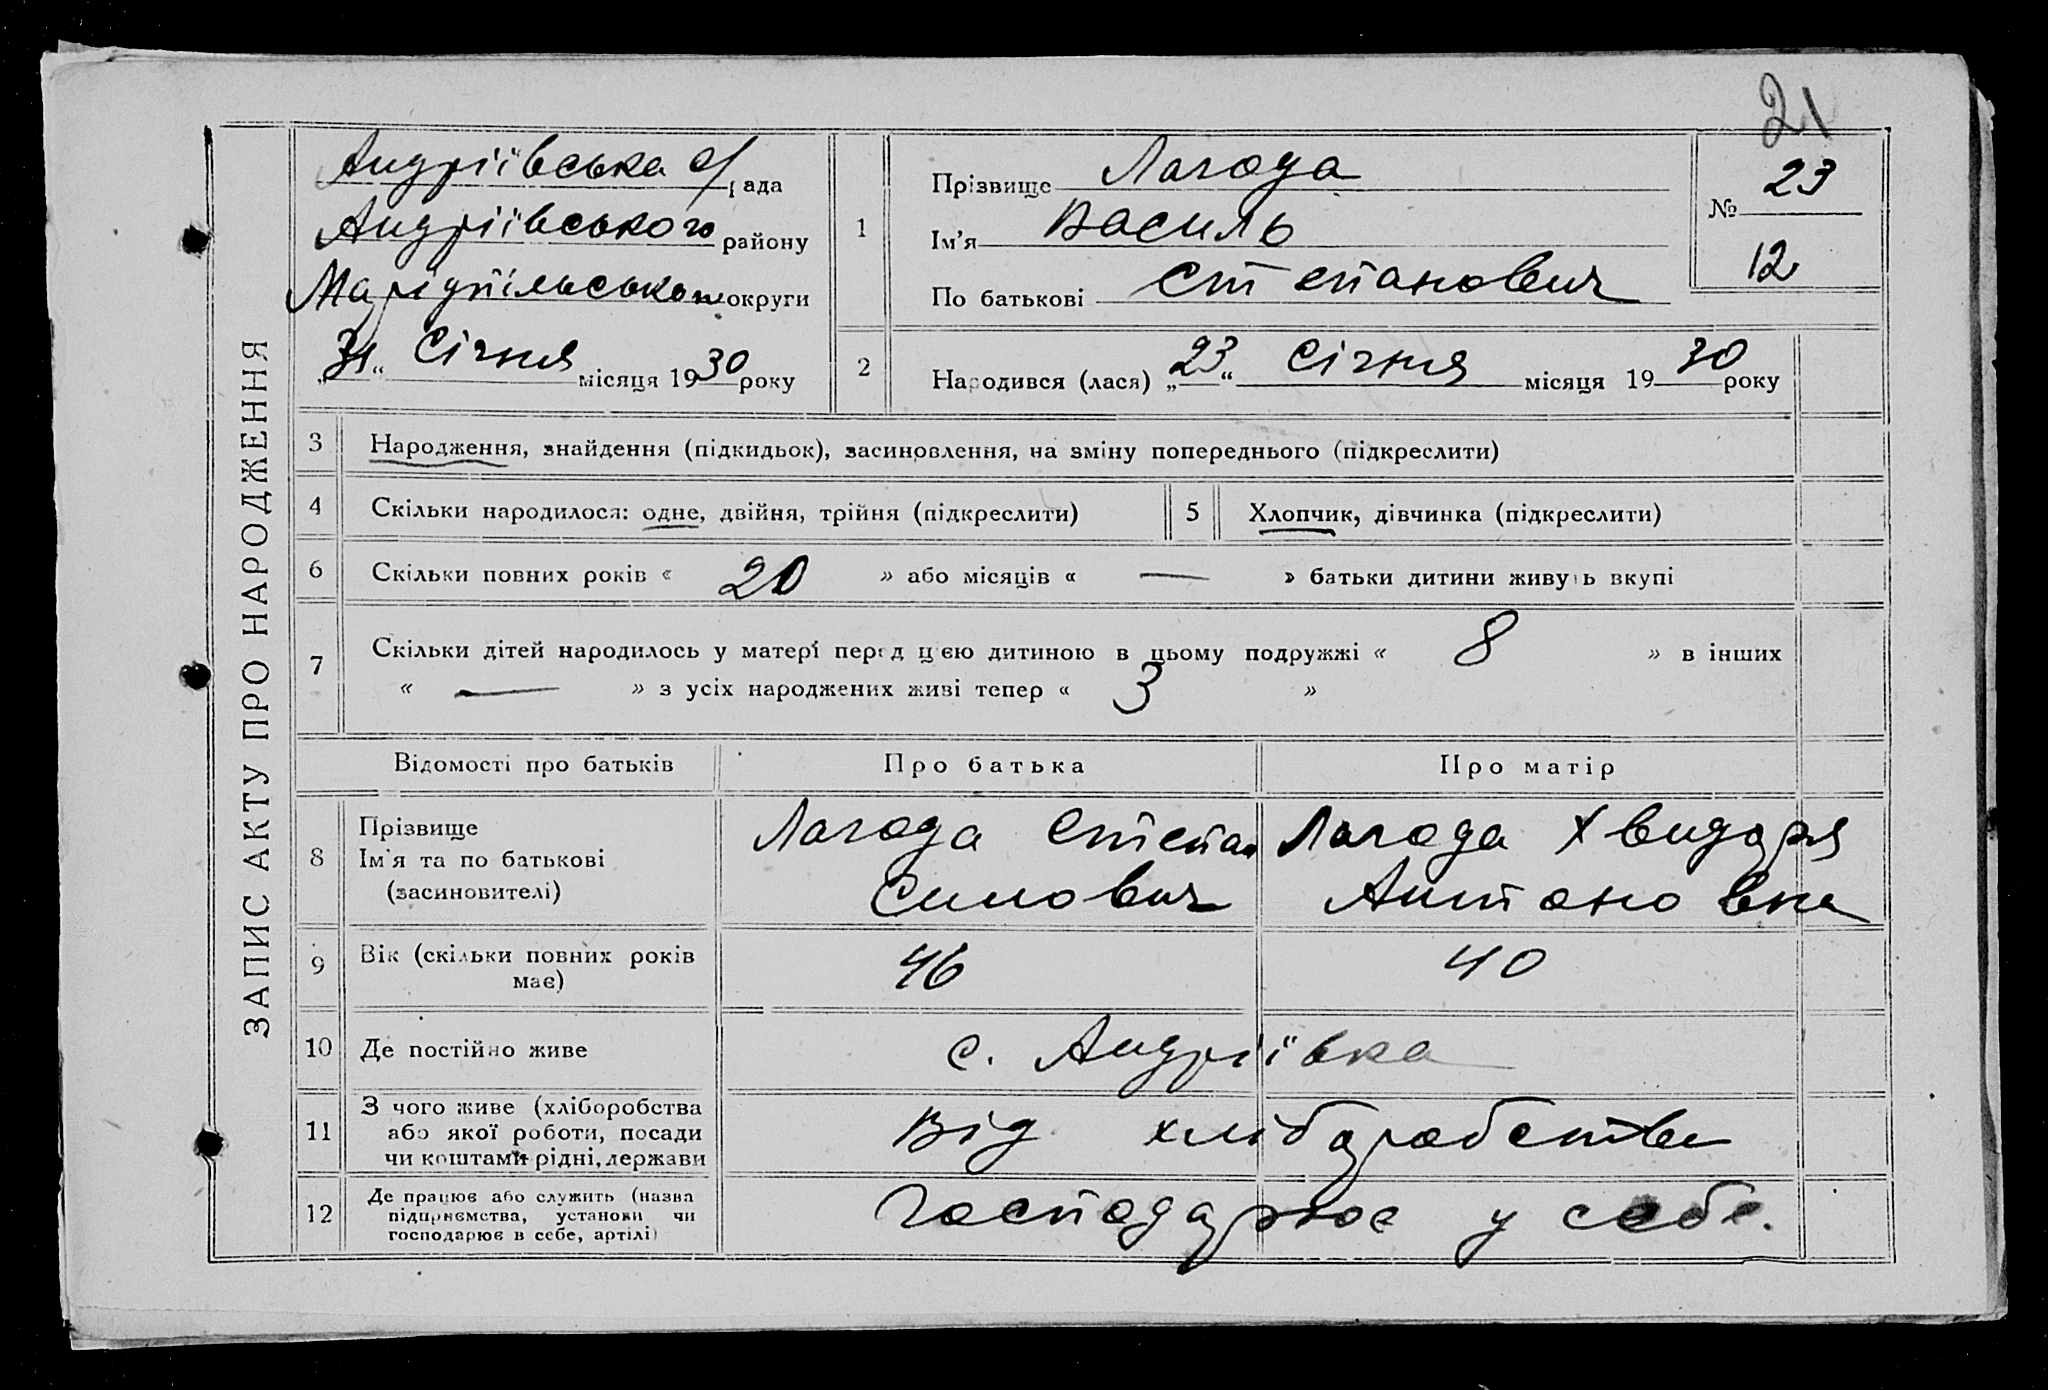 21
ЗАПИС АКТУ ПРО НАРОДЖЕННЯ
Андріївська с/рада
Андріївського району
Маріупільської округи
„31“ Січня місяця 1930 року
1
Прізвище Лагода
Ім'я Василь
По батькові Степанович
№ 23
12
2
Народився (лася) „23“ Січня місяця 1930 року
3 Народження, знайдення (підкидьок), засиновлення, на зміну попереднього (підкреслити)
4 Скільки народилося: одне, двійня, трійня (підкреслити) 5 Хлопчик, дівчинка (підкреслити)
6 Скільки повних років « 20 » або місяців « — » батьки дитини живуть вкупі
7 Скільки дітей народилось у матері перед цією дитиною в цьому подружжі « 8 » в інших
« — » з усіх народжених живі тепер « 3 »
Відомості про батьків Про батька Про матір
8 Прізвище
Ім'я та по батькові
(засиновителі)
Лагода Степан
Силович
Лагода Хвидоря
Антоновна
9 Вік (скільки повних років
має)
46 40
10 Де постійно живе с. Андріївка
11 З чого живе (хліборобства
або якої роботи, посади
чи коштами рідні, держави
Від хліборобства
12 Де працює або служить (назва
підприємства, установи чи
господарює в себе, артілі)
Господарює у себе.